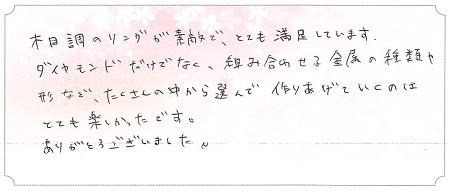 木目調のリングが素敵で、とても満足しています.
ダイヤモンドだけでなく、組み合わせる金属の種類や
形など、たくさんの中から選んで 作りあげていくのは
とても楽しかったです。
ありがとうございました